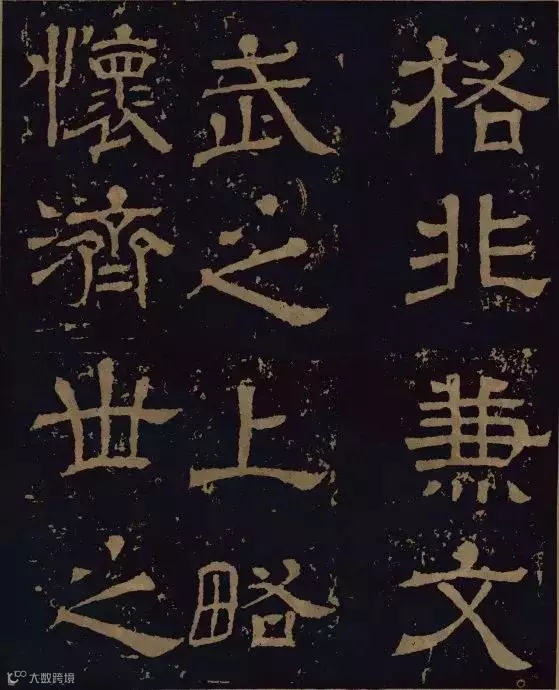 格非兼文
武之上略
懷濟世之
大数跨境